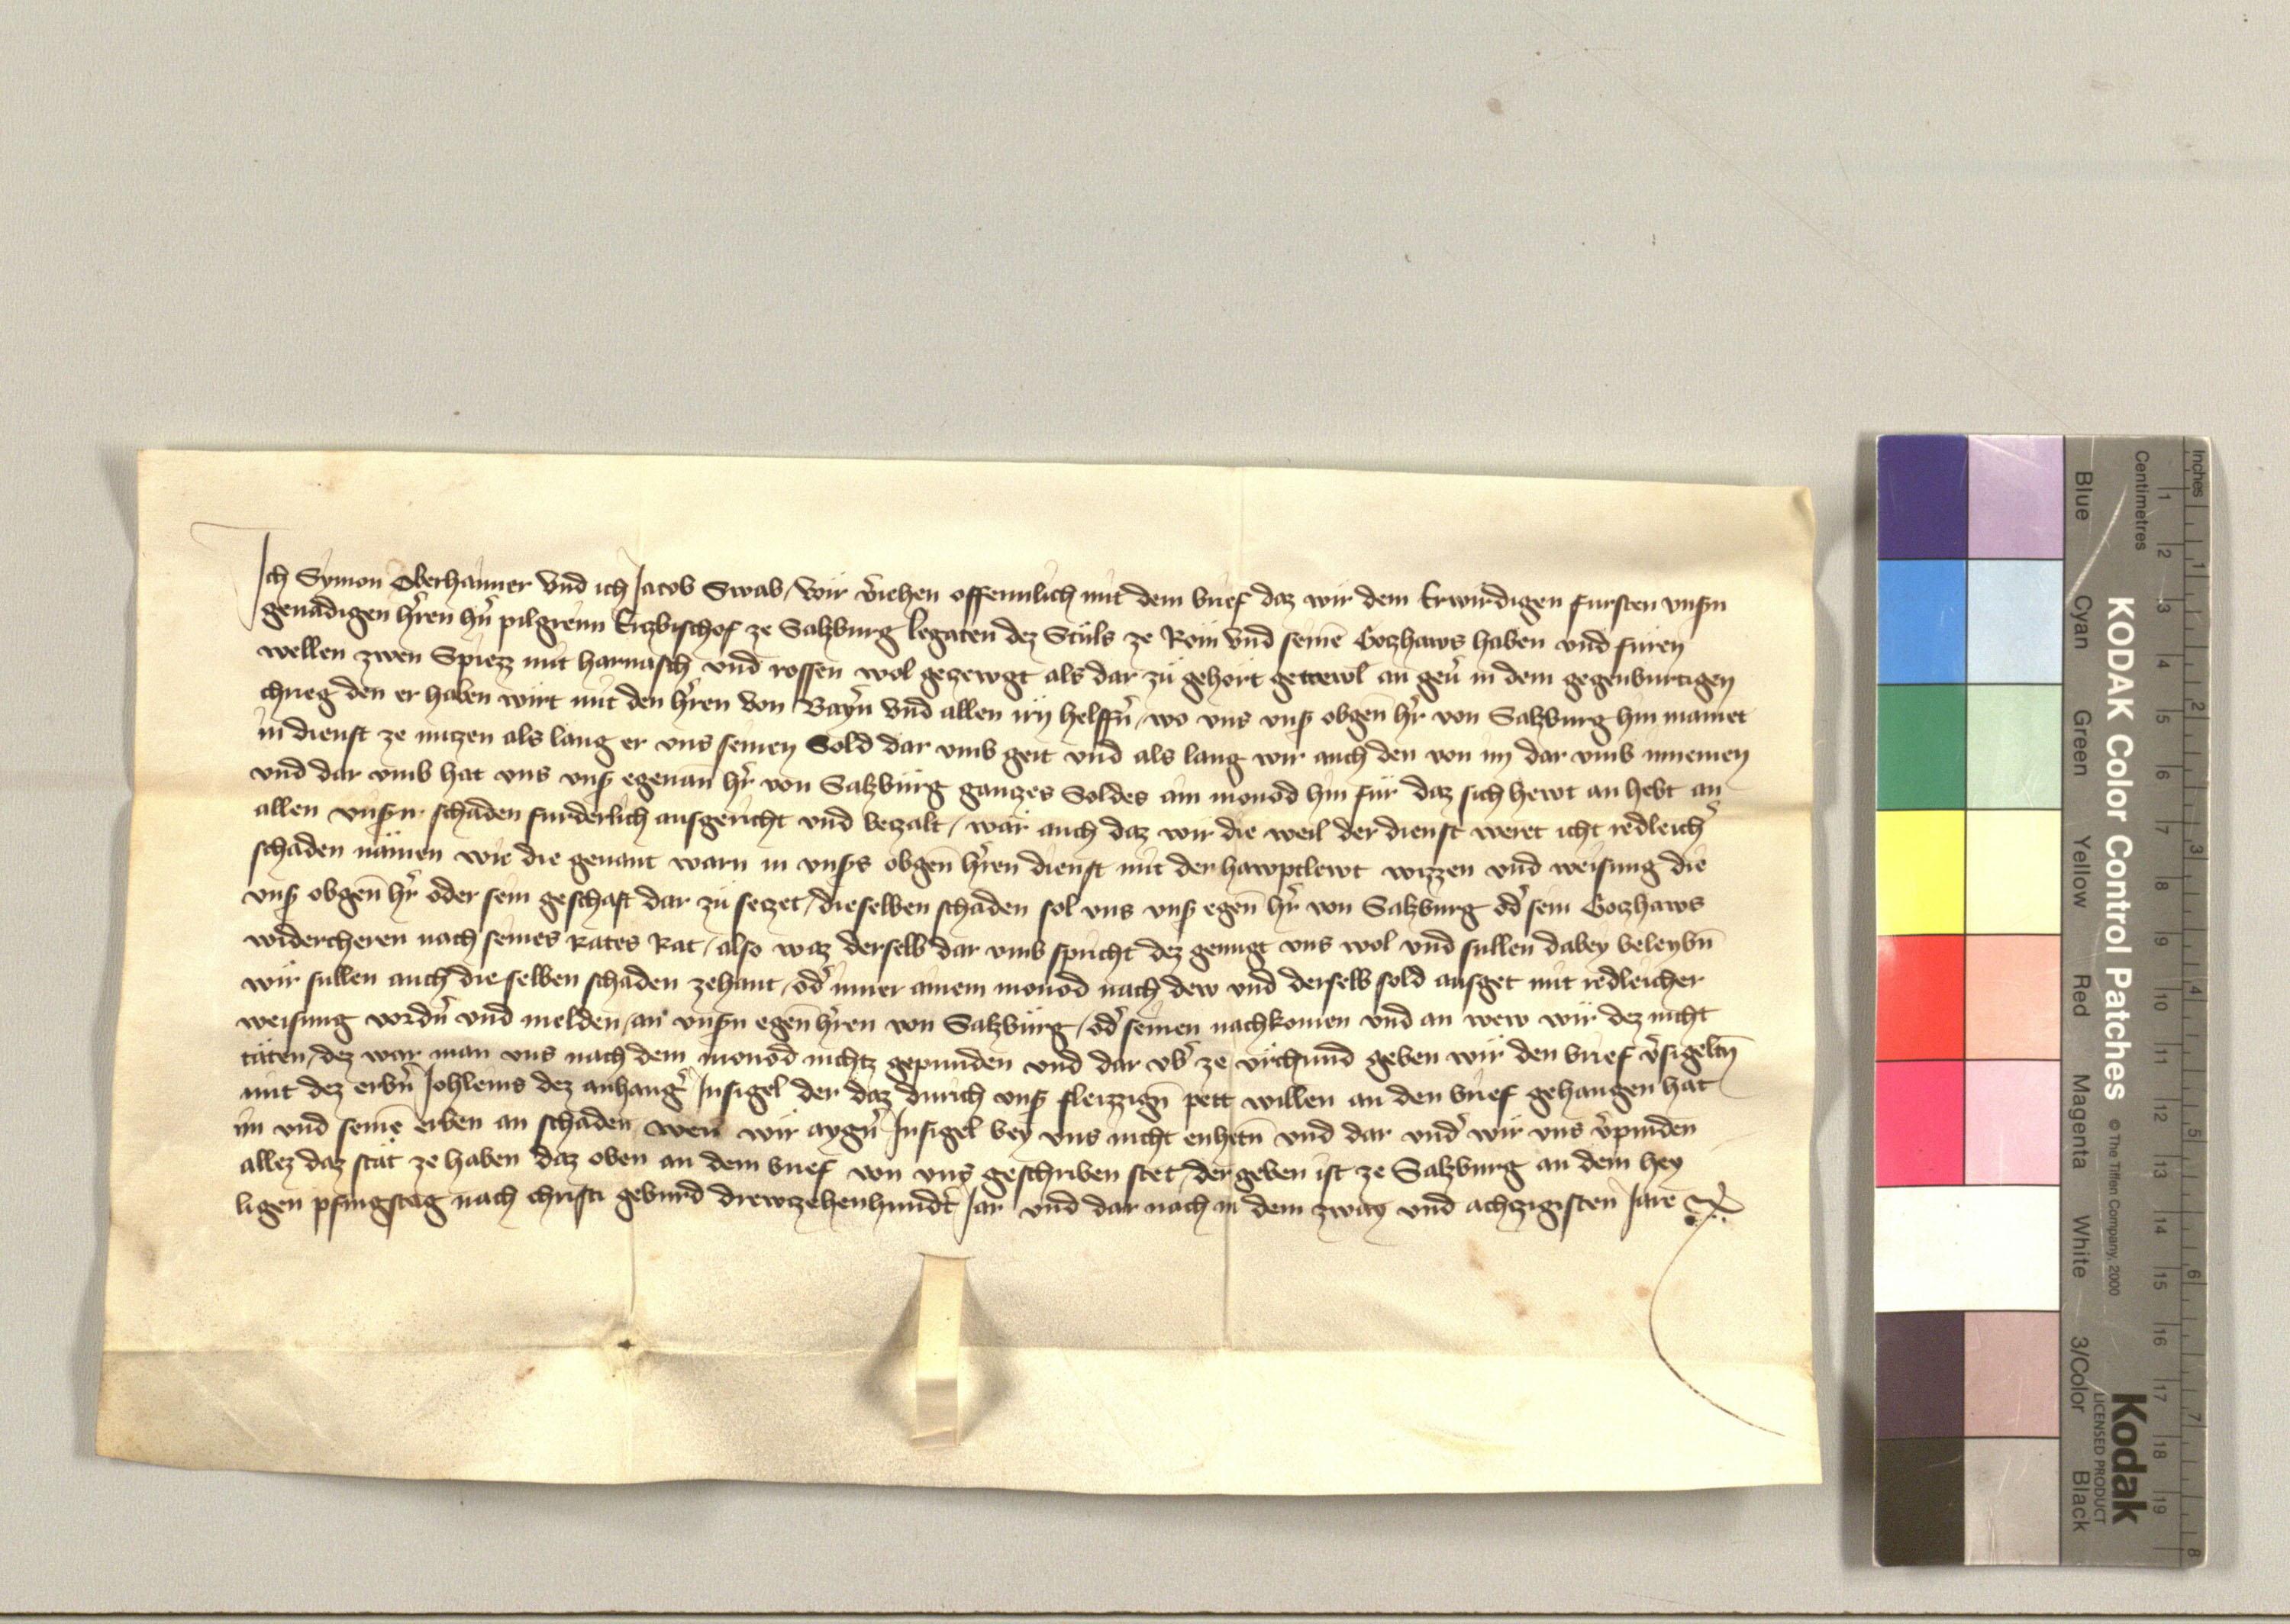 Ich Symon Oberhaimer vnd ich Jacob Swab, wir v̓iehen offennlich mit dem brief daz wir dem Erwirdigen fursten vnsm̄
genadigen hr̄ren hn̄ pilgreim Erzbischof ze Salzburg legaten dez Stuls ze Rom vnd seinē Gotzhaws haben vnd furen
wellen zwen Spiezz mit harnasch vnd rossen wol gezewgt als dar zu gehort getrewl an geu̓ in dem gegenburtigen
chrieg den er haben wirt mit den hr̄ren von Bayrn̄ vnd allen irn helffrn̄, wo vns vns̓ obgen̄ hr̄ von Salzburg hin mamet
in dienst ze nutzen als lang er vns seinen Sold dar vmb geit vnd als lang wir auch den von im dar vmb innemen
vnd dar vmb hat vns vns̓ egenan̄ hr̄ von Salzburg ganczes Soldes ain monod hin fur daz sich hewt an hebt an
allen vnsrn schaden furderlich ausgericht vnd beczalt, war auch daz wir die weil der dienst weret icht redleich̓
schaden nämen wie die genant warn in vnss̓ obgen̄ hr̄ren dienst mit der hawptlewt wizzen vnd weisung die
vns̓ obgen̄ hr̄ oder sein geschaft dar zu setzet, dieselben schaden sol vns vns̓ egen̄ hr̄ von Salzburg od̓ sein Gotzhaws
widercheren nach seines Rates Rat, also waz derselb dar vmb spricht dez genugt vns wol vnd sullen dabey beleybn̄
wir sullen auch die selben schaden zehant, od̓ inner ainem monod nach dew vnd derselb sold ausget mit redleicher
weisung vordn̓ vnd melden, an vnsrn egen̄ hr̄ren von Salzburg, od̓ seinen nachkomen vnd an wew wir dez nicht
täten, dez war man vns nach dem monod nichtz gepunden vnd dar vb̓ ze vrchund geben wir den brief v̓sigeltn̄
mit dez erbn̓ Johleins dez anhang̓ Insigel der daz durich vns̓ fleizzign̄ pett willen an den brief gehangen hat
im vnd seinē erben an schaden wen wir aygn̓ Insigel bey vns nicht enhetn̄ vnd dar vnd̓ wir vns v̓pinden
allez daz stät ze haben daz oben an dem brief von vns geschriben stet, der geben ist ze Salzburg an dem hey
ligen pfingstag nach christi geburd drewzehenhundt̓ Jar vnd dar nach in dem zway vnd achtzigisten Jare
KODAK Color Control Patches © The Tiffen Company, 2000
Kodak
LICENSED PRODUCT
Blue Cyan Green Yellow Red Magenta White 3/Color Black
Inches 1 2 3 4 5 6 7 8
Centimetres 1 2 3 4 5 6 7 8 9 10 11 12 13 14 15 16 17 18 19